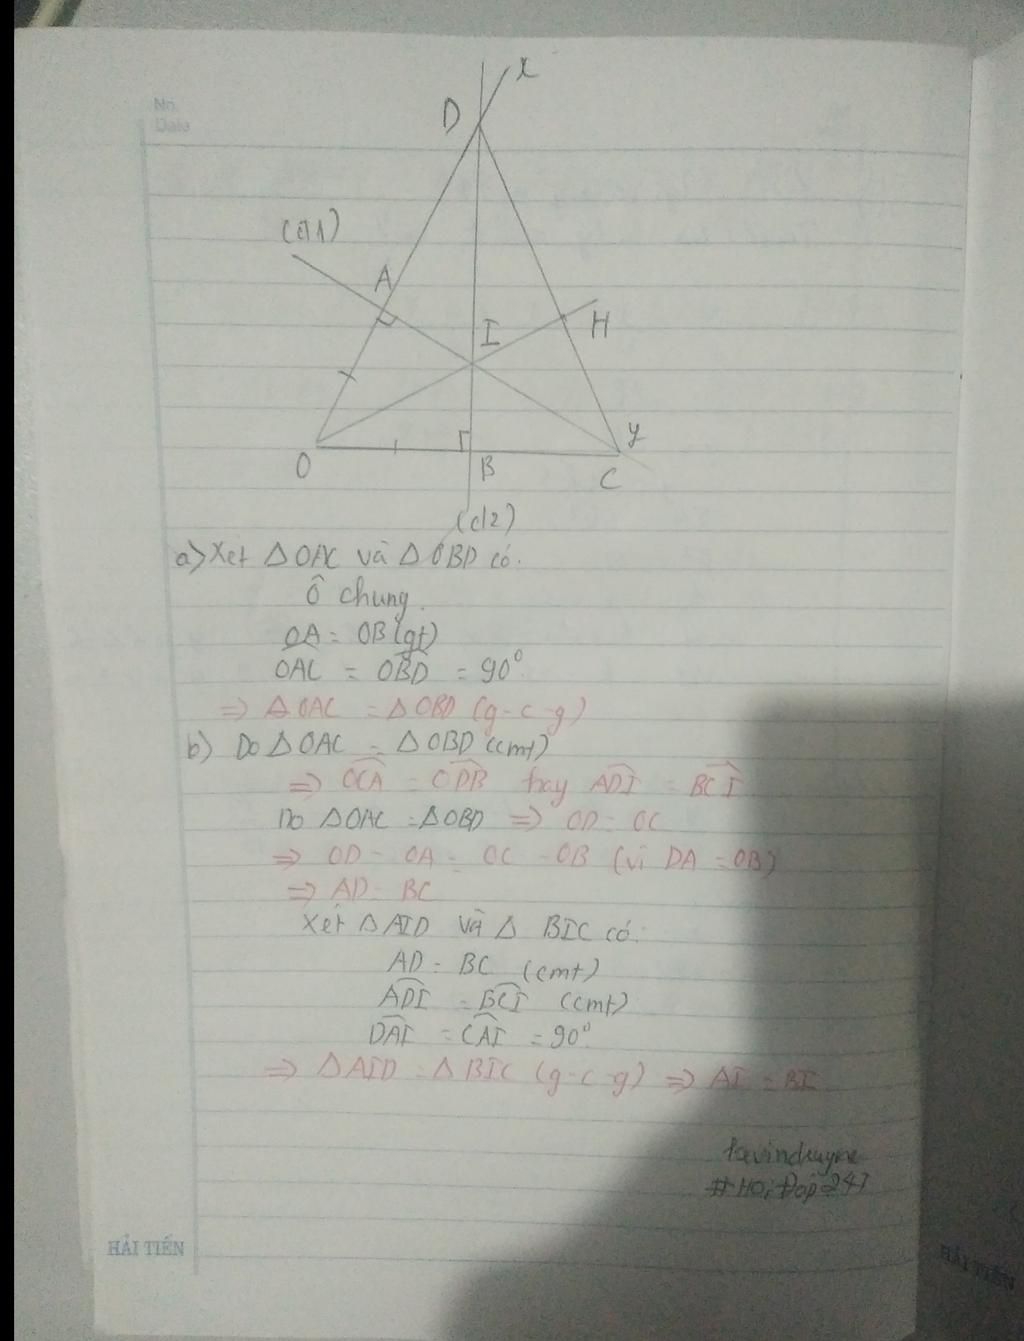 No.
Date
x
D
(d1)
A
I
H
O
B
y
C
(d2)
a) Xét △OAC và △OBD có:
Ô chung.
OA = OB (gt)
OAC = OBD = 90°
=> △OAC = △OBD (g-c-g)
b) Do △OAC = △OBD (cmt)
=> OCA = ODB hay ADI = BCI
Do △OAC = △OBD => OD = OC
=> OD - OA = OC - OB (vì DA = OB)
=> AD = BC
Xét △AID và △ BIC có:
AD = BC (cmt)
ADI = BCI (cmt)
DAI = CAI = 90°
=> △AID = △BIC (g-c-g) => AI = BI
HẢI TIẾN
HẢI TIẾN